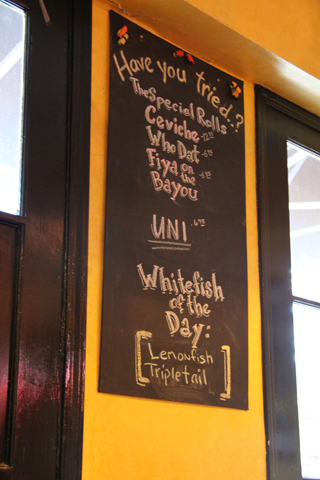 Have you tried..?
The Special Rolls
Ceviche
Who Dat
Fiya on
the
Bayou
UNI
Whitefish
of the
Day:
Lemonfish
Tripletail